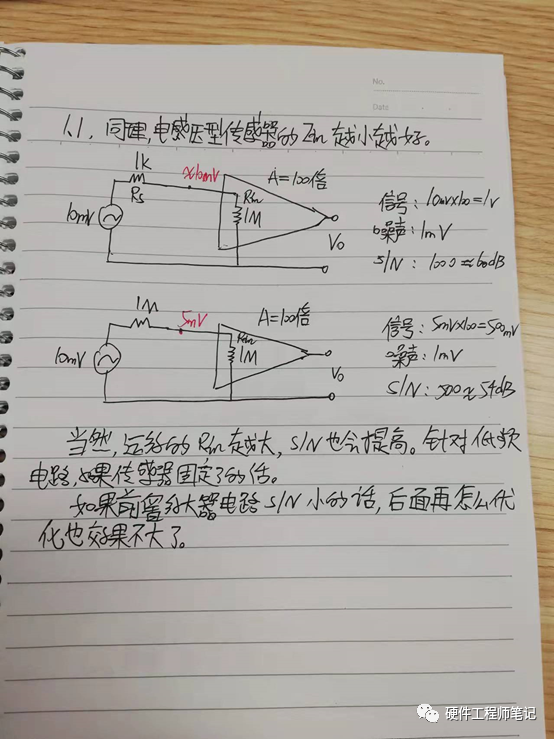 No.
Date
1.1, 同理,电感压型传感器的Zin越小越好。
1K
Rs
≈10mV
A=100倍
Rin
1M
10mV
Vo
信号: 10mV×100=1V
噪声: 1mV
S/N: 1000≈60dB
1M
5mV
A=100倍
Rin
1M
10mV
Vo
信号: 5mV×100=500mV
噪声: 1mV
S/N: 500≈54dB
当然,运放的Rin越大,S/N也会提高。针对低频
电路,如果传感器固定了的话。
如果前置放大器电路S/N小的话,后面再怎么优
化也效果不大了。
硬件工程师笔记